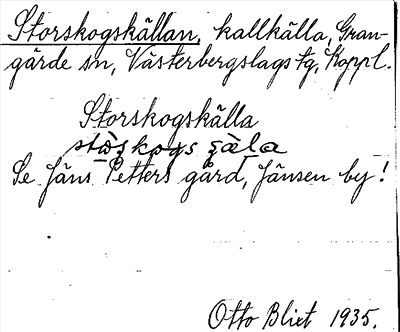 Storskogskällan, kallkälla, Gran-
gärde sn, Västerbergslags tg, Koppl.
Storskogskälla
Se Jäns Petters gård, Jänsen by!
Otto Blixt 1935.